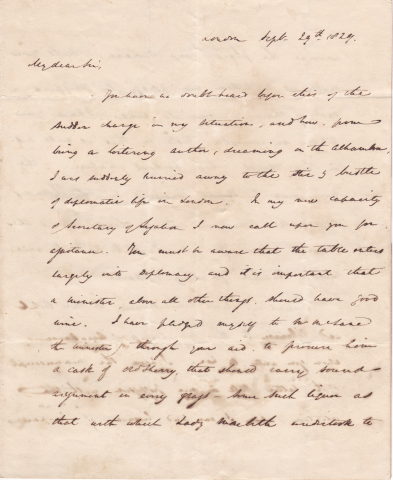 London Sept. 29th 1829.
My dear Sir,
You have no doubt heard before this of the
sudden change in my situation, and how from
being a loitering author, dreaming in the Alhambra,
I was suddenly hurried away to the stir & bustle
of diplomatic life in London. In my new capacity
of Secretary of Legation I now call upon you for
assistance. You must be aware that the table enters
largely into diplomacy, and it is important that
a minister, above all other things, should have good
wine. I have pledged myself to Mr McLane
the minister, through your aid to procure him
a cask of old sherry, that should carry sound
argument in every glass - some such liquor as
that with which Lady Macbeth undertook to